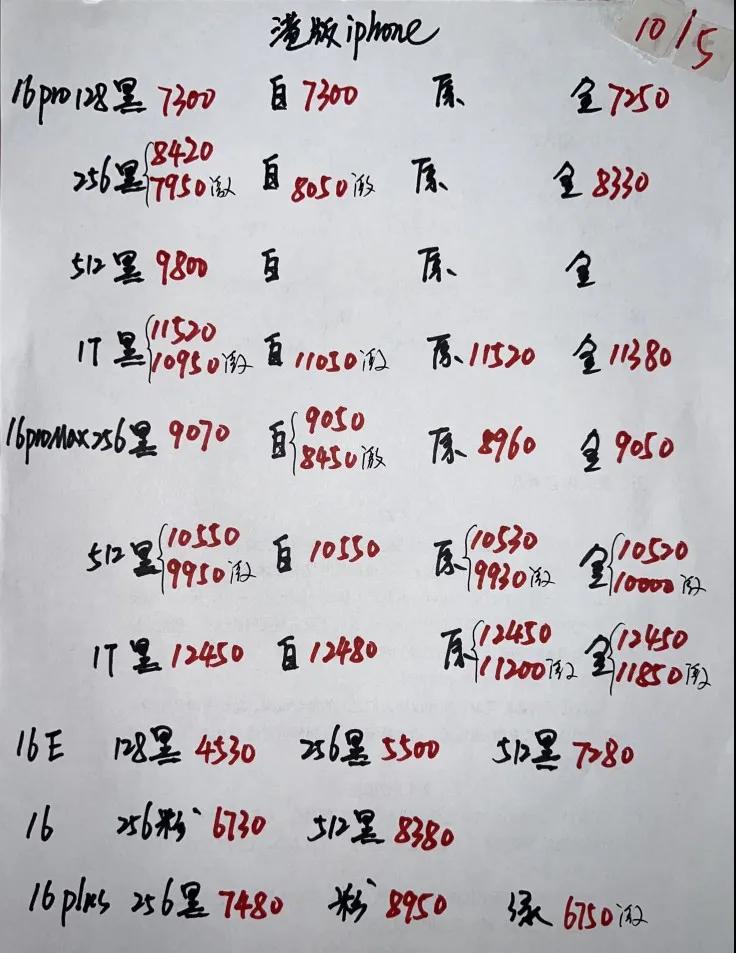 港版iphone
10/5
16pro128黑 7300 白 7300 原 金 7250
256黑 8420 白 8050激 原 金 8330
7950激
512黑 9800 白 原 金
1T 黑 11520 白 11050激 原 11520 金 11380
10950激
16proMax256黑 9070 白 9050 原 8960 金 9050
8450激
512黑 10550 白 10550 原 10530 金 10520
9950激 9930激 10000激
1T 黑 12450 白 12480 原 12450 金 12450
11200激 11850激
16E 128黑 4530 256黑 5500 512黑 7280
16 256粉 6730 512黑 8380
16plus 256黑 7480 粉 8950 绿 6750激